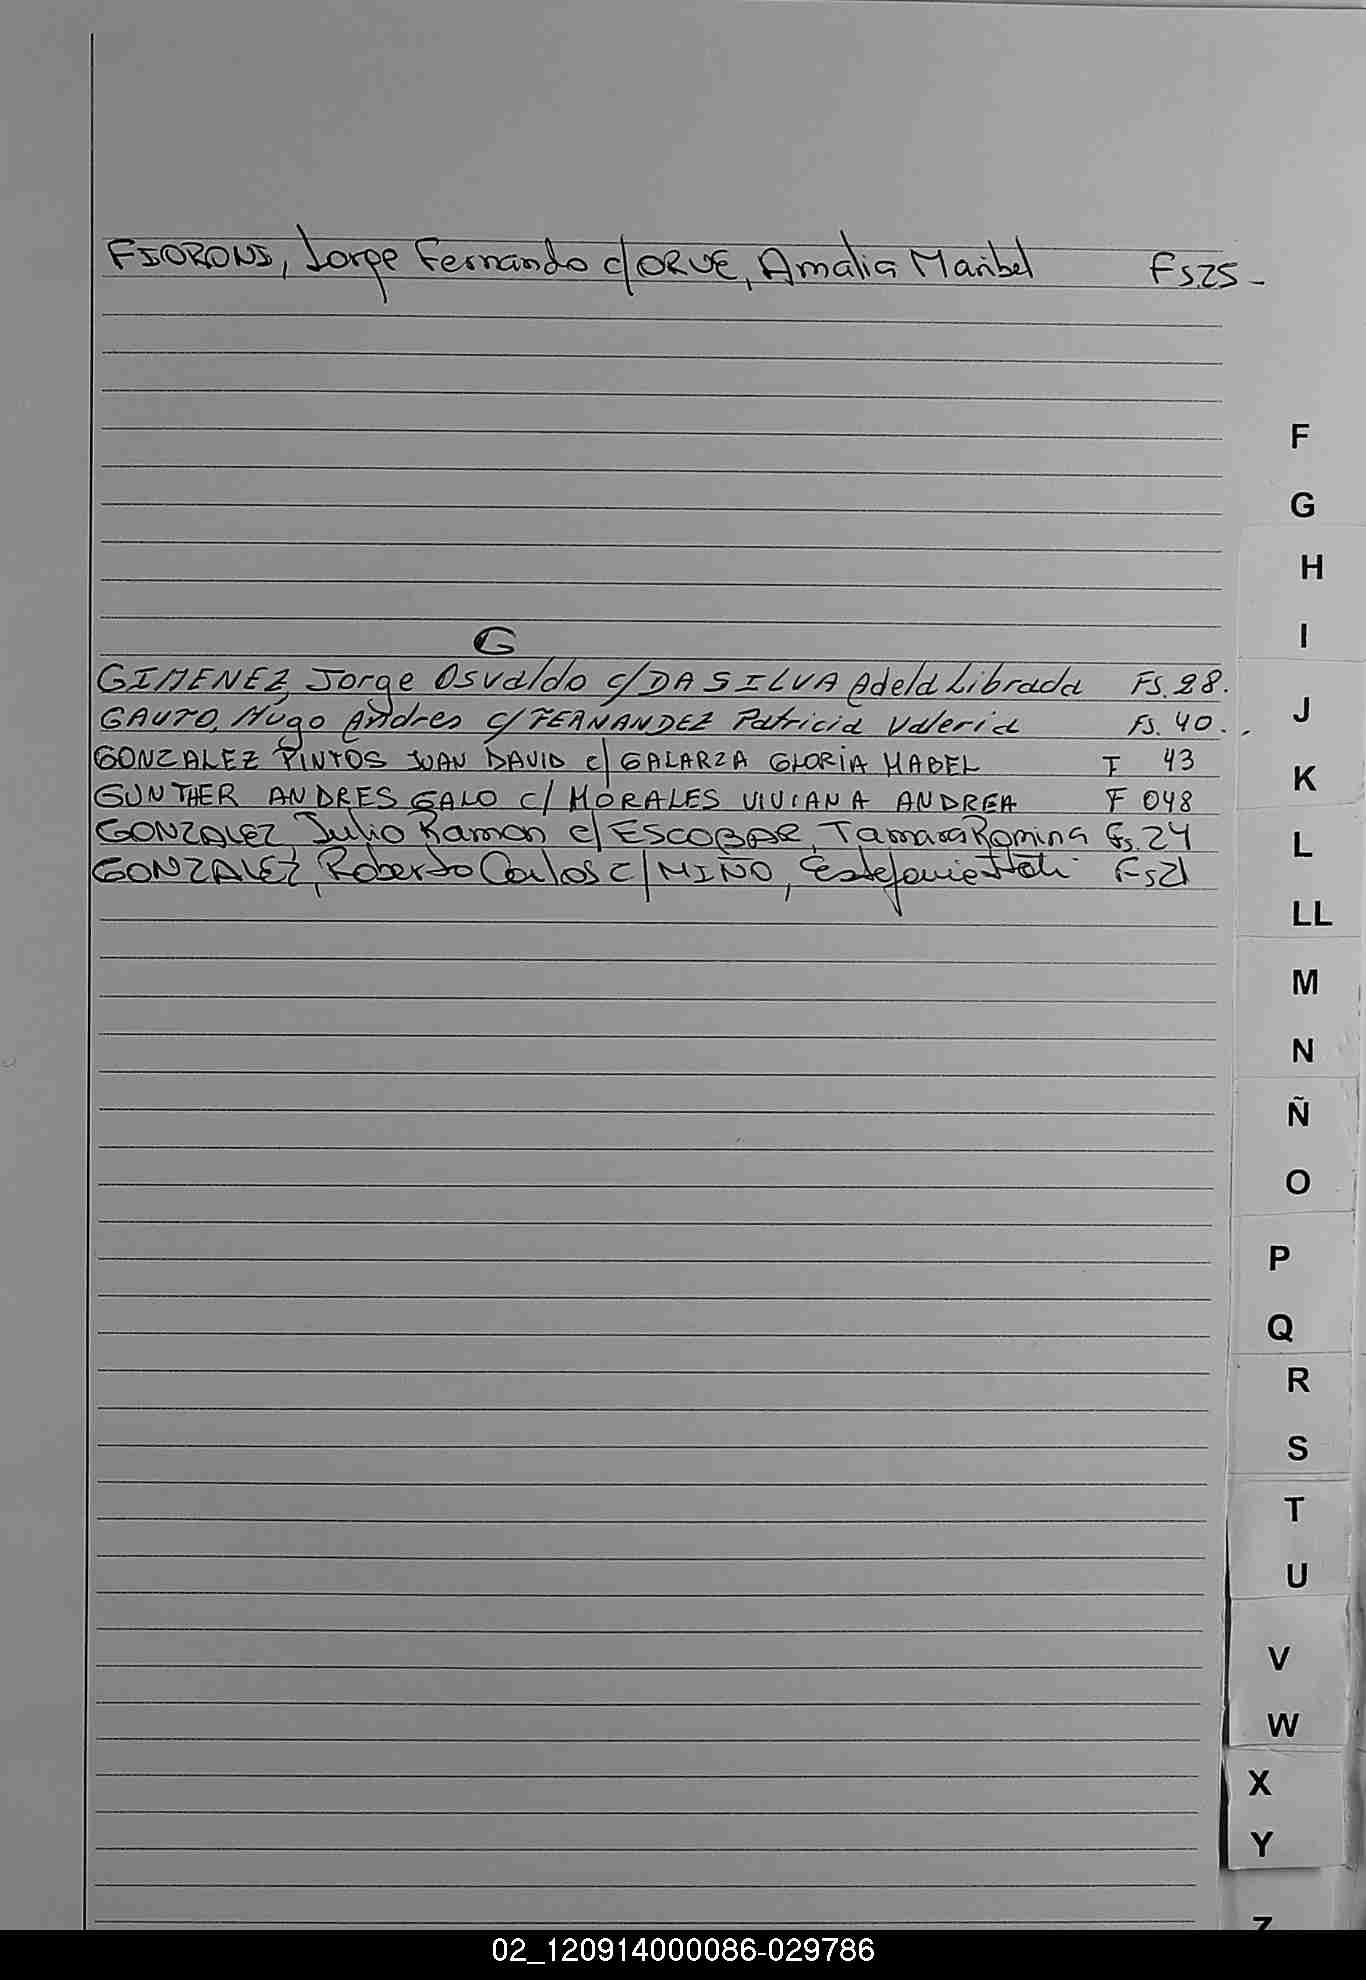 FIORONI, Jorge Fernando c/ORUE, Amalia Maribel Fs25-
F
G
H
I
G
GIMENEZ, Jorge Osvaldo c/DA SILVA Adela Librada Fs. 28.
GAUTO, Hugo Andres c/FERNANDEZ Patricia Valeria Fs. 40.
J
GONZALEZ PINTOS JUAN DAVID c/ GALARZA GLORIA MABEL F 43
K
GUNTHER ANDRES GALO c/ MORALES VIVIANA ANDREA F 048
GONZALEZ, Julio Ramon c/ESCOBAR, Tamara Romina Fs. 24
L
GONZALEZ, Roberto Carlos c/MIÑO, Estefania Fs21
LL
M
N
Ñ
O
P
Q
R
S
T
U
V
W
X
Y
Z
02_120914000086-029786